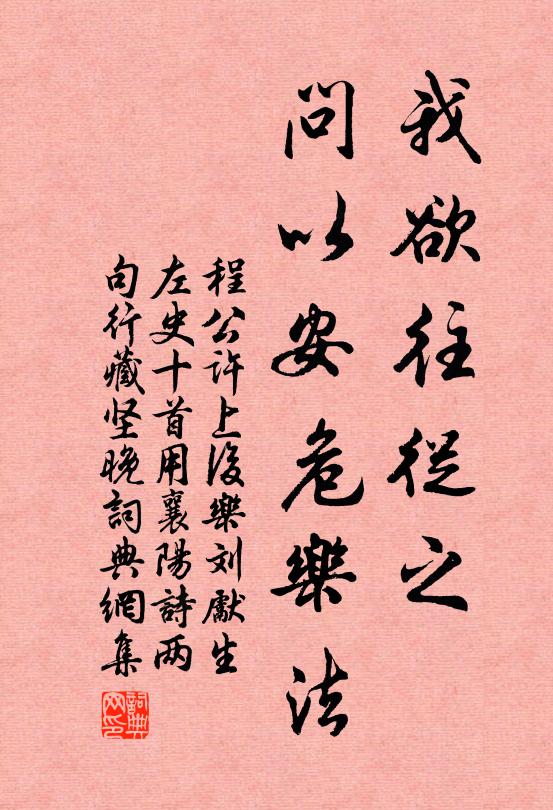 我欲往從之
問以安危樂法
程公许上後樂刘獻生
左史十首用襄陽詩两
句行藏坚晚詞典網集
詞典网印